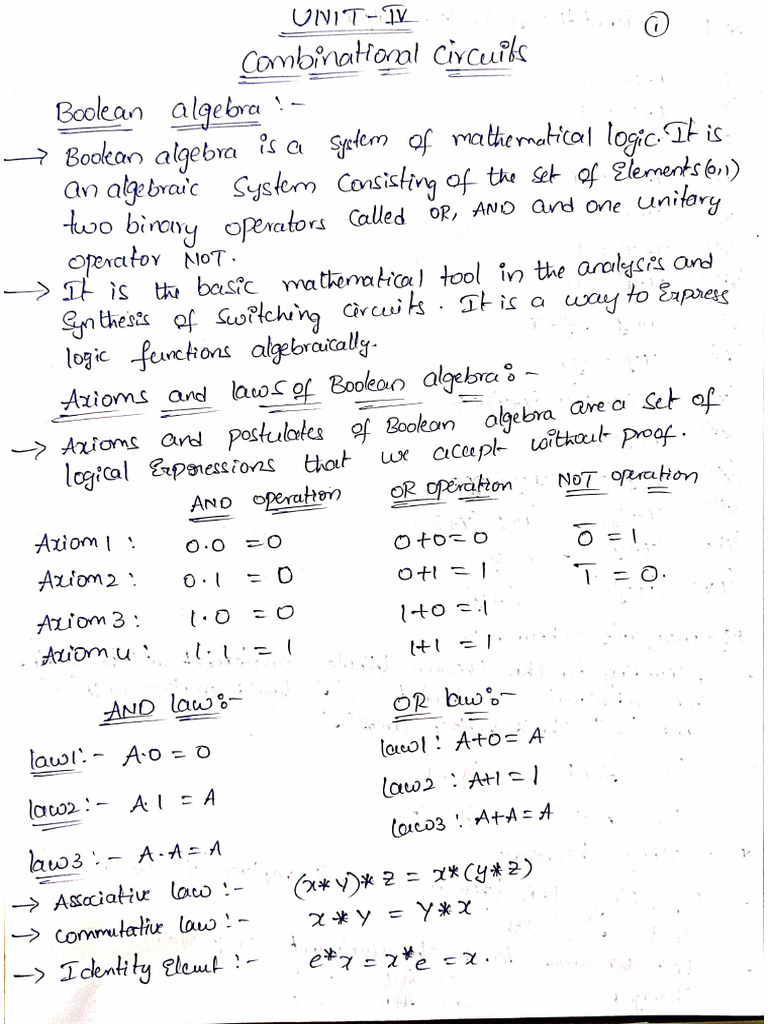 UNIT-IV
①
Combinational Circuits
Boolean algebra :-
→ Boolean algebra is a system of mathematical logic. It is
an algebraic system consisting of the set of Elements (0,1)
two binary operators called OR, AND and one unitary
operator NOT.
→ It is the basic mathematical tool in the analysis and
Synthesis of Switching Circuits. It is a way to Express
logic functions algebraically.
Axioms and laws of Boolean algebra :-
→ Axioms and postulates of Boolean algebra are a set of
logical Expressions that we accept without proof.
AND operation OR operation NOT operation
Axiom 1 : 0.0 = 0 0+0 = 0 0̅ = 1
Axiom 2 : 0.1 = 0 0+1 = 1 1̅ = 0.
Axiom 3 : 1.0 = 0 1+0 = 1
Axiom 4 : 1.1 = 1 1+1 = 1
AND law :- OR law :-
law1 :- A.0 = 0 law1 : A+0 = A
law2 :- A.1 = A law2 : A+1 = 1
law3 :- A.A = A law3 : A+A = A
→ Associative law :- (x*y)*z = x*(y*z)
→ commutative law :- x*y = y*x
→ Identity Elemt :- e*x = x*e = x.